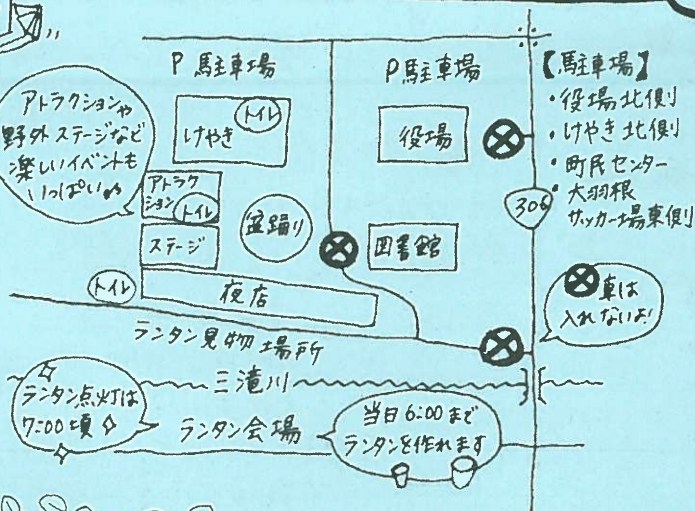 P 駐車場
P 駐車場
【駐車場】
・役場北側
・けやき北側
・町民センター
・大羽根
サッカー場東側
アトラクションや
野外ステージなど
楽しいイベントも
いっぱい♪♪
トイレ
けやき
役場
306
アトラク
ション
トイレ
盆踊り
ステージ
図書館
トイレ
夜店
車は
入れないよ!
ランタン見物場所
三滝川
ランタン点灯は
7:00頃
ランタン会場
当日6:00まで
ランタンを作れます